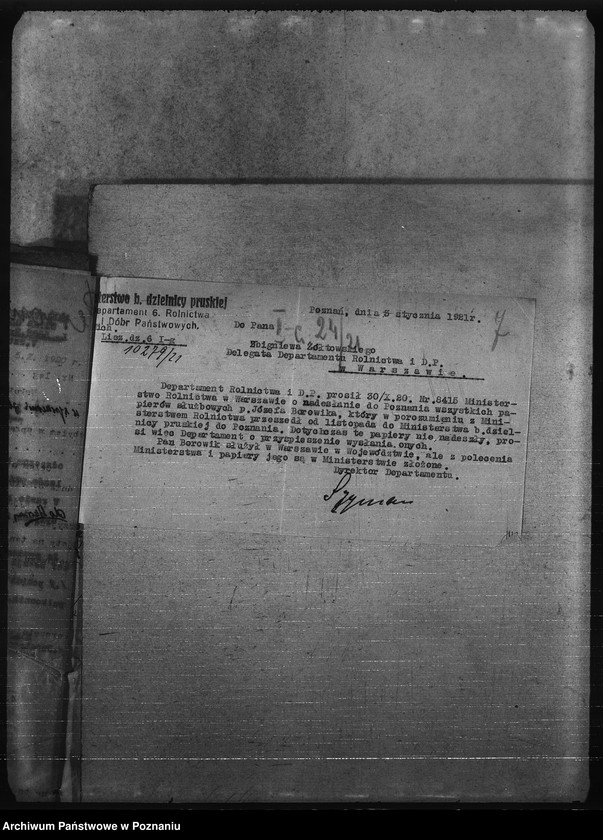 terstwo b. dzielnicy pruskiej
epartament 6. Rolnictwa
i Dóbr Państwowych.
Licz.dz.6 I-g
10279/21
Poznań, dnia 5 stycznia 1921r.
7
I-G 24/21
Do Pana
Zbigniewa Żółtowskiego
Delegata Departamentu Rolnictwa i D.P.
w Warszawie.
Departament Rolnictwa i D.P. prosił 30/X.20. Nr.8415 Minister-
stwo Rolnictwa w Warszawie o nadesłanie do Poznania wszystkich pa-
pierów służbowych p.Józefa Borowika, który w porozumieniu z Mini-
sterstwem Rolnictwa przeszedł od listopada do Ministerstwa b.dziel-
nicy pruskiej do Poznania. Dotychczas te papiery nie nadeszły, pro-
si więc Departament o przyspieszenie wysłania onych.
Pan Borowik służył w Warszawie w Województwie, ale z polecenia
Ministerstwa i papiery jego są w Ministerstwie złożone.
Dyrektor Departamentu.
Archiwum Państwowe w Poznaniu